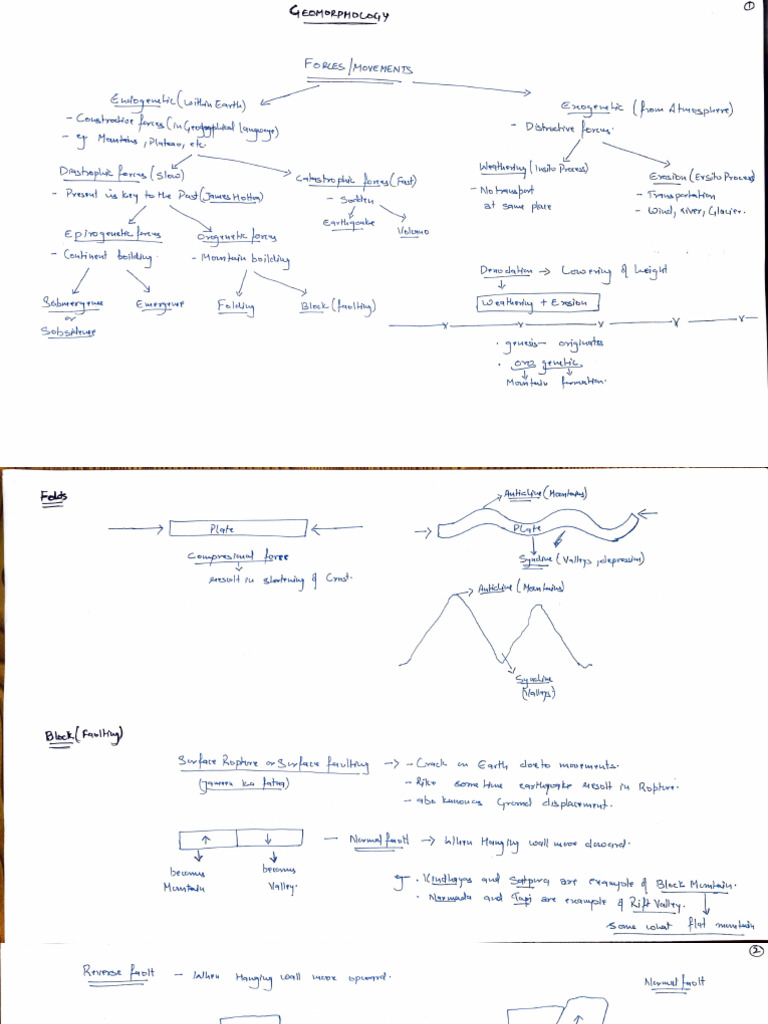 GEOMORPHOLOGY
1
FORCES/MOVEMENTS
Endogenetic (within Earth)
- Constructive forces (in Geographical Language)
- eg Mountains, Plateau, etc.
Exogenetic (from Atmosphere)
- Distructive forces.
Diastrophic forces (Slow)
- Present is key to the Past (James Hotton)
Catastrophic forces (Fast)
- Sudden
Earthquake
Volcano
Weathering (Insito Process)
- No transport
at same place
Erosion (Exsito Process)
- Transportation
- Wind, River, Glacier.
Epirogenetic forces
- Continent building.
Orogenetic forces
- Mountain building
Submergence
or
Subsidence
Emergence
Folding
Block (faulting)
Denudation → Lowering of height
Weathering + Erosion
• genesis— originates
• Oros genetic
Mountain formation.
Folds
Plate
Compresional force
result in shortening of Crust.
Anticline (Mountains)
Plate
Syncline (Valleys, depression)
Anticline (Mountains)
Syncline
(Valleys)
Block (Faulting)
Surface Rupture or Surface faulting → - Crack on Earth due to movements.
(Jameen ka fatna)
- Like some time earthquake result in Rupture.
- also known as Ground displacement.
— Normal fault → When Hanging wall move downard.
becomes
Mountain
becomes
Valley.
eg. • Vindhayas and Satpura are example of Block Mountain.
• Narmada and Tapi are example of Rift Valley.
some what flat mountain
2
Reverse fault — When Hanging wall move upward.
Normal fault